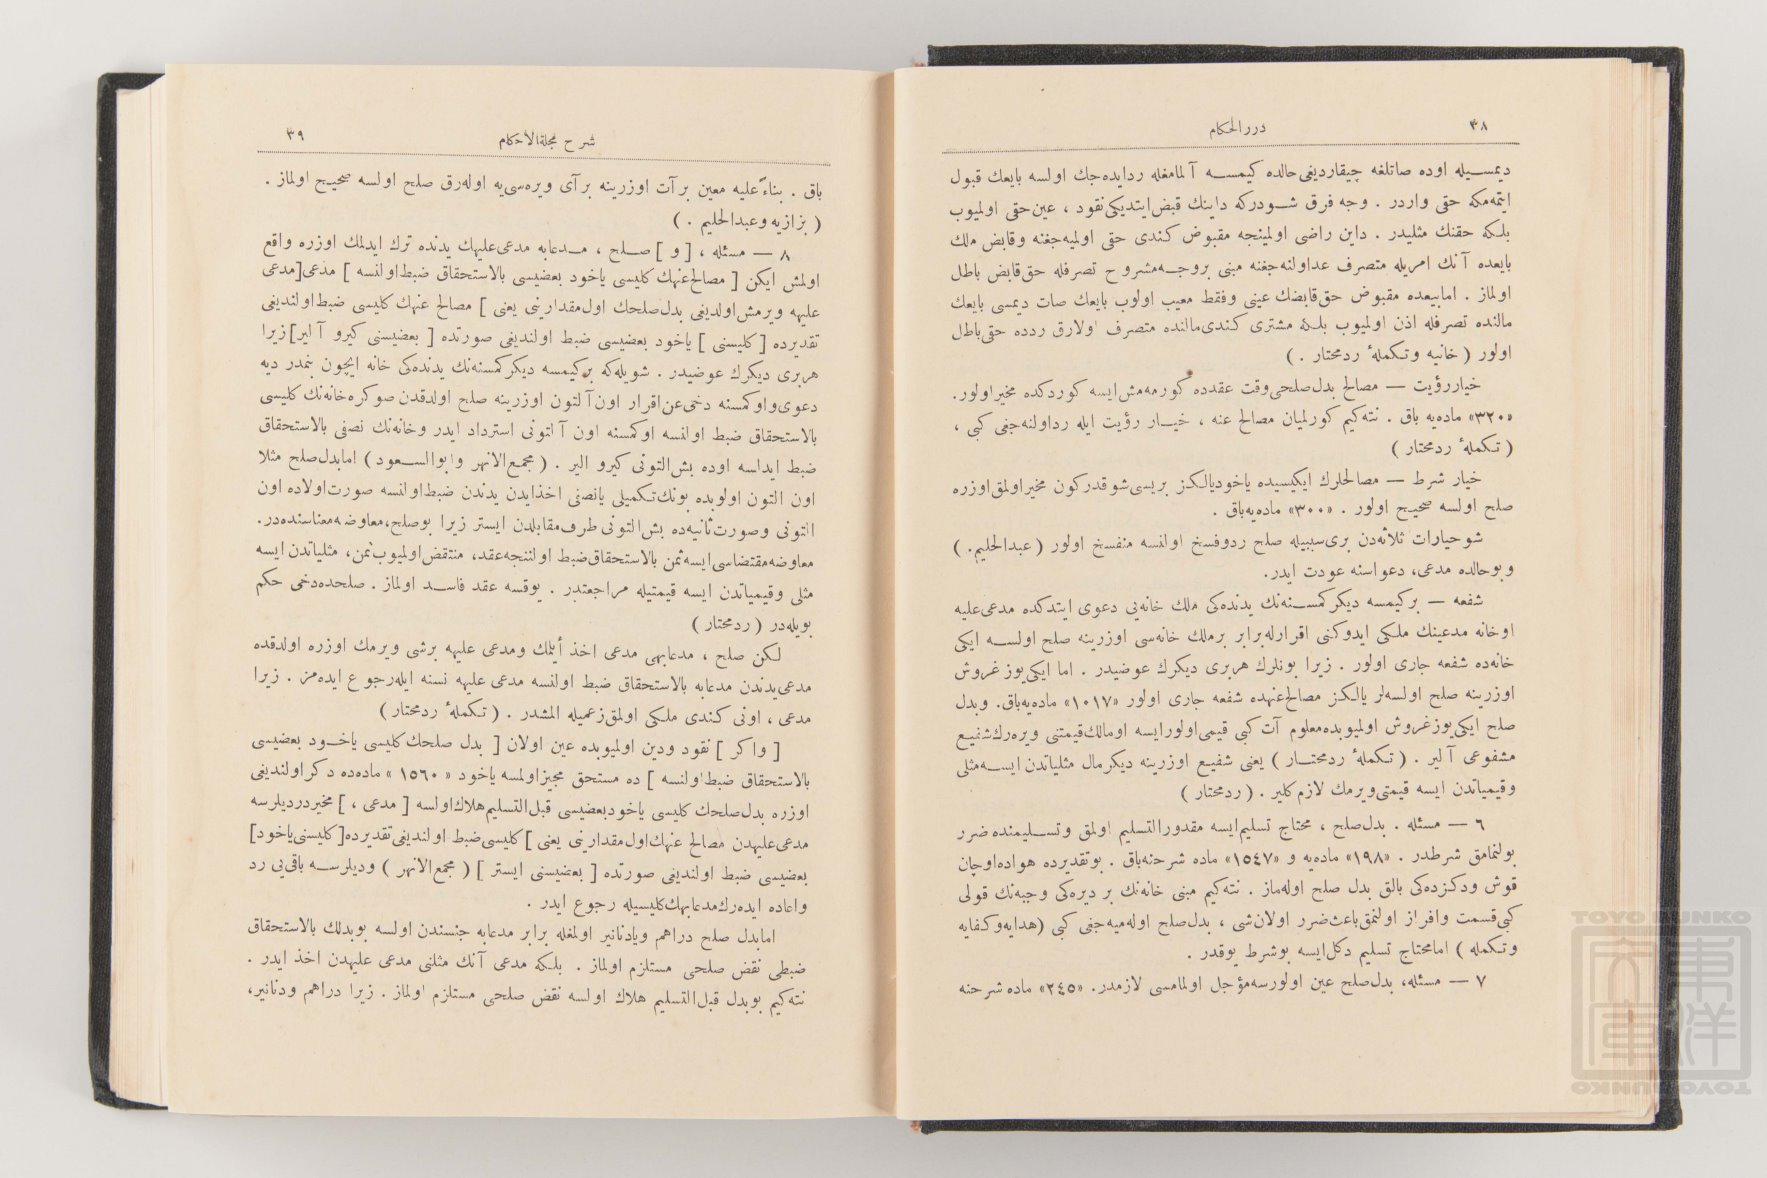 ٣٨
دررالحكام
ديمسيله اوده صاتلغه چيقارديغى حالده كيمسه آلمامغله ردايده‌جك اولسه بايعك قبول
ايتمه‌مكه حقى واردر . وجه فرق شودركه داينك قبض ايتديكى نقود ، عين حقى اولميوب
بلكه حقنك مثليدر . داين راضى اولمينجه مقبوض كندى حقى اولميه‌جغنه وقابض ملك
بايعده آنك امريله متصرف عداولنه‌جغنه مبنى بروجه‌مشروح تصرفله حق‌قابض باطل
اولماز . امابيعده مقبوض حق‌قابضك عينى وفقط معيب اولوب بايعك صات ديمسى بايعك
مالنده تصرفله اذن اولميوب بلكه مشترى كندى‌مالنده متصرف اولارق ردده حقى‌باطل
اولور ( خانيه وتكملهٔ ردمحتار . )
خياررؤيت — مصالح بدل‌صلحى‌وقت عقدده كورمه‌مش‌ايسه كوردكده مخيراولور.
«٣٢٠» ماده‌يه باق . نته‌كيم كورلميان مصالح عنه ، خيار رؤيت ايله رداولنه‌جغى كبى ،
( تكملهٔ ردمحتار )
خيار شرط — مصالحلرك ايكيسيده ياخوديالكز بريسى‌شوقدركون مخيراولمق‌اوزره
صلح اولسه صحيح اولور . «٣٠٠» ماده‌يه‌باق .
شوخيارات ثلاثه‌دن برى‌سببيله صلح ردوفسخ اولنسه منفسخ اولور ( عبدالحليم. )
وبوحالده مدعى، دعواسنه عودت ايدر.
شفعه — بركيمسه ديكركمسنه‌نك يدنده‌كى ملك خانه‌يى دعوى ايتدكده مدعى‌عليه
اوخانه مدعينك ملكى ايدوكنى اقرارله‌برابر برملك خانه‌سى اوزرينه صلح اولسه ايكى
خانه‌ده شفعه جارى اولور . زيرا بونلرك هربرى ديكرك عوضيدر . اما ايكى‌يوز غروش
اوزرينه صلح اولسه‌لر يالكز مصالح‌عنهده شفعه جارى اولور «١٠١٧» ماده‌يه‌باق. وبدل
صلح ايكى‌يوزغروش اولميوبده‌معلوم آت كبى قيمى‌اولورايسه اومالك‌قيمتنى ويره‌رك‌شفيع
مشفوعى آلير . ( تكملهٔ ردمحتار ) يعنى شفيع اوزرينه ديكرمال مثلياتدن ايسه‌مثلى
وقيمياتدن ايسه قيمتى‌ويرمك لازم‌كلير . ( ردمحتار )
٦ — مسئله . بدل‌صلح ، محتاج تسليم‌ايسه مقدورالتسليم اولمق وتسليمنده ضرر
بولنمامق شرطدر . «١٩٨» ماده‌يه و «١٥٤٧» ماده شرحنه‌باق . بوتقديرده هواده‌اوچان
قوش ودكزده‌كى بالق بدل صلح اوله‌ماز . نته‌كيم مبنى خانه‌نك بر ديره‌كى وجبه‌نك قولى
كبى‌قسمت وافراز اولنمق‌باعث‌ضرر اولان‌شى ، بدل‌صلح اوله‌ميه‌جغى كبى (هدايه‌وكفايه
وتكمله ) امامحتاج تسليم دكل‌ايسه بوشرط يوقدر .
٧ — مسئله، بدل‌صلح عين اولورسه‌مؤجل اولمامسى لازمدر. «٢٤٥» ماده شرحنه
شرح مجلةالاحكام
٣٩
باق . بناءً عليه معين برآت اوزرينه برآى ويره‌سى‌يه اوله‌رق صلح اولسه صحيح اولماز .
( بزازيه وعبدالحليم . )
٨ — مسئله ، [ و ] صلح ، مدعابه مدعى‌عليهك يدنده ترك ايدلمك اوزره واقع
اولمش ايكن [ مصالح‌عنهك كليسى ياخود بعضيسى بالاستحقاق ضبط‌اولنسه ] مدعى[مدعى
عليهه ويرمش‌اولديغى بدل‌صلحك اول‌مقدارينى يعنى ] مصالح عنهك كليسى ضبط‌اولنديغى
تقديرده [ كليسنى ] ياخود بعضيسى ضبط اولنديغى صورتده [ بعضيسنى كيرو آلير]زيرا
هربرى ديكرك عوضيدر . شويله‌كه بركيمسه ديكركمسنه‌نك يدنده‌كى خانه ايچون بنمدر ديه
دعوى‌واوكمسنه دخى‌عن‌اقرار اون‌آلتون اوزرينه صلح اولدقدن صوكره‌خانه‌نك كليسى
بالاستحقاق ضبط اولنسه اوكمسنه اون آلتونى استرداد ايدر وخانه‌نك نصفى بالاستحقاق
ضبط ايداسه اوده بش‌التونى كيرو الير . ( مجمع‌الانهر وابوالسعود ) امابدل‌صلح مثلا
اون التون اولوبده بونك‌تكميلى يانصفى اخذايدن يدندن ضبط‌اولنسه صورت‌اولاده اون
التونى وصورت‌ثانيه‌ده بش‌التونى طرف‌مقابلدن ايستر زيرا بوصلح،معاوضه‌معناسنده‌در.
معاوضه‌مقتضاسى‌ايسه‌ثمن بالاستحقاق‌ضبط اولننجه‌عقد، منتقض‌اولميوب‌ثمن، مثلياتدن ايسه
مثلى وقيمياتدن ايسه قيمتيله مراجعتدر . يوقسه عقد فاسد اولماز . صلحده‌دخى حكم
بويله‌در ( ردمحتار )
لكن صلح ، مدعابهى مدعى اخذ أيلمك ومدعى عليهه برشى ويرمك اوزره اولدقده
مدعى‌يدندن مدعابه بالاستحقاق ضبط اولنسه مدعى عليهه نسنه ايله‌رجوع ايده‌مز . زيرا
مدعى ، اونى كندى ملكى اولمق‌زعميله المشدر . ( تكملهٔ ردمحتار )
[ واكر ] نقود ودين اولميوبده عين اولان [ بدل صلحك كليسى ياخود بعضيسى
بالاستحقاق ضبط‌اولنسه ] ده مستحق مجيزاولمسه ياخود « ١٥٦٠ » ماده‌ده ذكراولنديغى
اوزره بدل‌صلحك كليسى ياخودبعضيسى قبل‌التسليم‌هلاك‌اولسه [ مدعى ، ] مخيردرديلرسه
مدعى‌عليهدن مصالح عنهك‌اول‌مقدارينى يعنى ] كليسى‌ضبط اولنديغى‌تقديرده[ كليسنى‌ياخود]
بعضيسى ضبط اولنديغى صورتده [ بعضيسنى ايستر ] ( مجمع‌الانهر ) وديلرسه باقى‌يى رد
واعاده ايده‌رك‌مدعابهك‌كليسيله رجوع ايدر .
امابدل صلح دراهم ويادنانير اولمغله برابر مدعابه جنسندن اولسه بوبدلك بالاستحقاق
ضبطى نقض صلحى مستلزم اولماز . بلكه مدعى آنك مثلنى مدعى عليهدن اخذ ايدر .
نته‌كيم بوبدل قبل‌التسليم هلاك اولسه نقض صلحى مستلزم اولماز . زيرا دراهم ودنانير،
TOYO BUNKO
東洋文庫
TOYO BUNKO